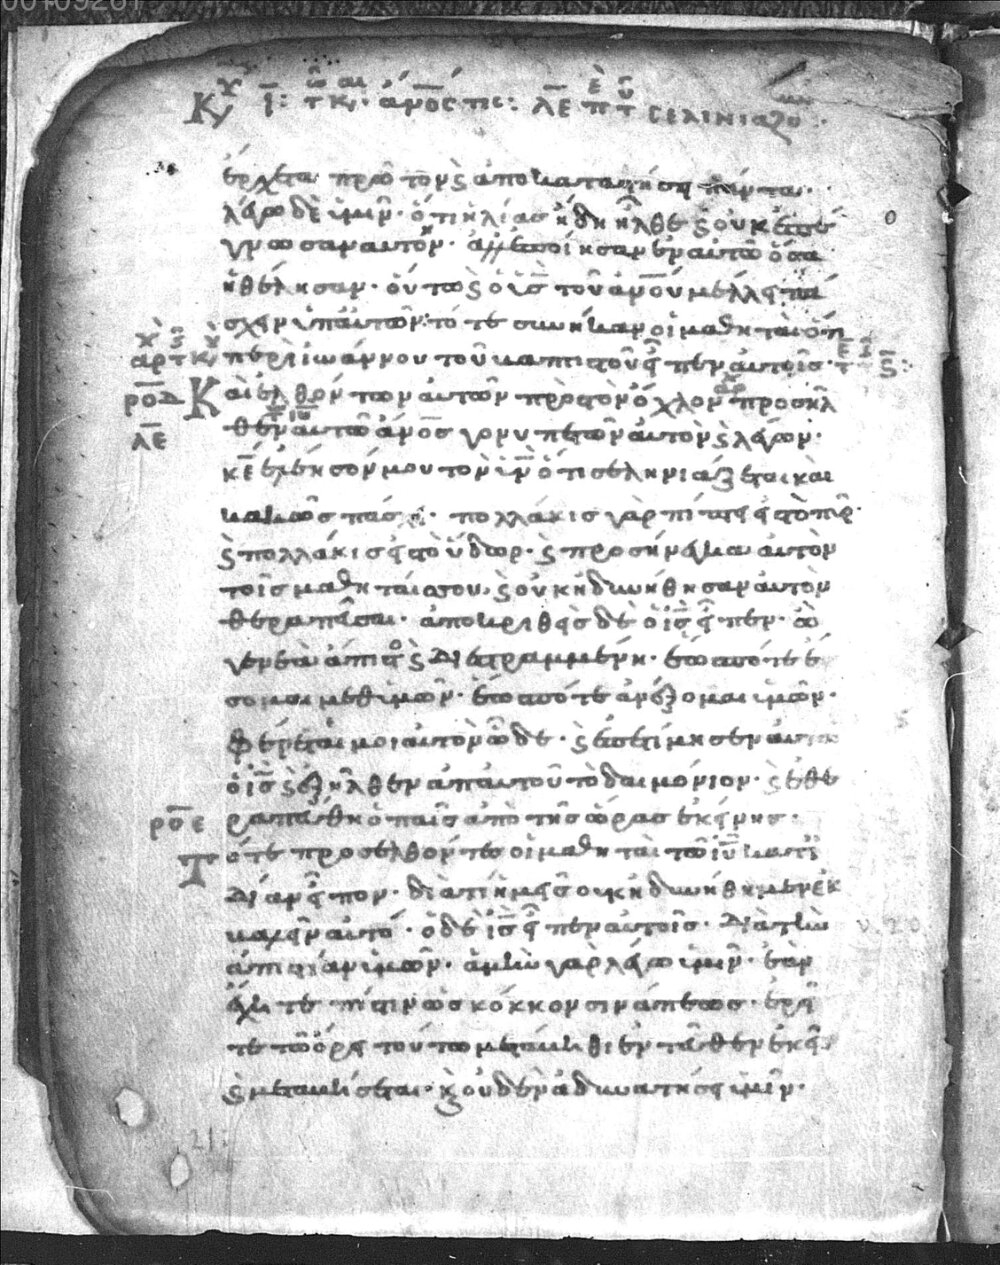 ἔρχεται πρῶτον ϗ ἀποκαταστήσει πάντα·
λέγω δὲ ὑμῖν· ὅτι ἡλίας ἤδη ἦλθε ϗ οὐκ ἐπέ
γνωσαν αὐτὸν· ἀλλ ἐποίησαν ἐν αὐτῶ ὅσα
ἠθέλησαν· οὕτως ϗ ὁ υἱς τοῦ ἀνου μέλλει πά
σχειν ὑπ αὐτῶν· τότε συνῆκαν οἱ μαθηταὶ ὅτι
περὶ ἰωάννου τοῦ βαπτιστοῦ εἶπεν αὐτοῖς·
ροδ Καὶ ἐλθόντων αὐτῶν πρὸς τὸν ὄχλον προσῆλ
λε θεν αὐτῶ ἄνος γονυπετῶν αὐτὸν ϗ λέγων·
κε ἐλέησόν μου τὸν υἱν ὅτι σεληνιάζεται καὶ
κακῶς πάσχει· πολλάκις γὰρ πίπτει εἰς τὸ πῦρ·
ϗ πολλάκις εἰς τὸ ὕδωρ· ϗ προσήνεγκα αὐτὸν
τοῖς μαθηταῖς σου, ϗ οὐκ ἠδυνήθησαν αὐτὸν
θεραπεῦσαι· ἀποκριθεὶς δὲ ὁ ις εἶπεν· ὦ
γενεὰ ἄπιστος ϗ διεστραμμένη· ἕως πότε ἔ
σομαι μεθ ὑμῶν· ἕως πότε ἀνέξομαι ὑμῶν·
φέρετέ μοι αὐτὸν ὧδε· ϗ ἐπετίμησεν αὐτῶ
ὁ ις ϗ ἐξῆλθεν ἀπ αὐτοῦ τὸ δαιμόνιον· ϗ ἐθε
ροε ραπεύθη ὁ παῖς ἀπὸ τῆς ὥρας ἐκείνης·
Τότε προσελθόντες οἱ μαθηταὶ τῶ ιυ κατ
ἰδίαν εἶπον· διὰ τί ἡμεῖς οὐκ ἠδυνήθημεν ἐκ
βαλεῖν αὐτό· ὁ δὲ ις εἶπεν αὐτοῖς· διὰ τὴν
ἀπιστίαν ὑμῶν· ἀμὴν γὰρ λέγω ὑμῖν· ἐὰν
ἔχητε πίστιν ὡς κόκκον σινάπεως· ἐρεῖ
τε τῶ ὄρει τούτω μετάβηθι ἐντεῦθεν ἐκεῖ
ϗ μεταβήσεται· ϗ οὐδὲν ἀδυνατήσει ὑμῖν·